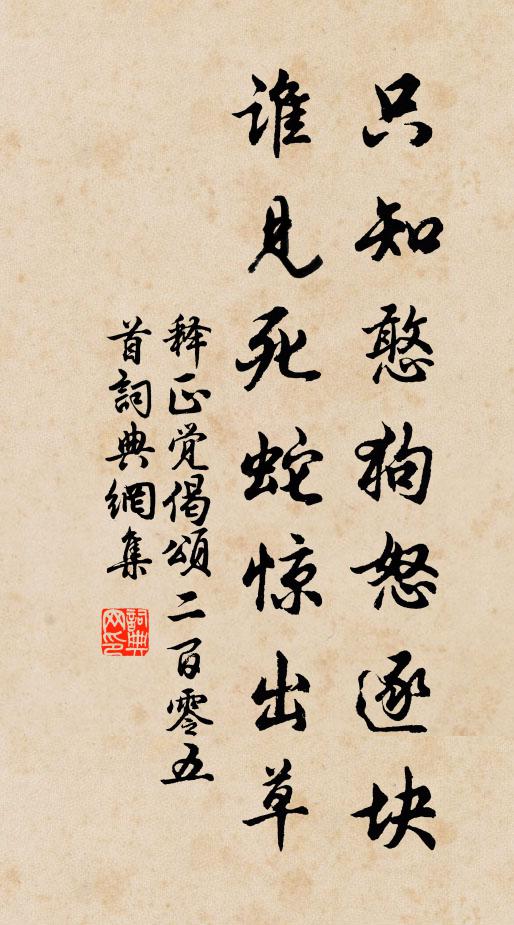 只知憨狗怒逐块
谁见死蛇惊出草
释正觉偈頌二百零五
首詞典網集
詞典
网印